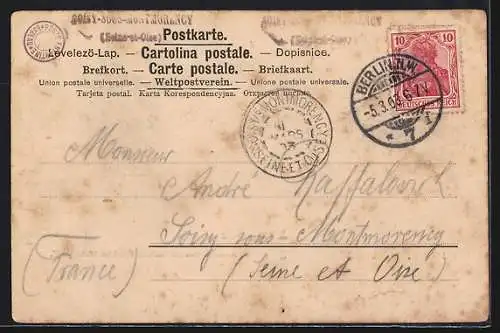 SOISY-SOUS-MONTMORENCY
(Seine-et-Oise)
Postkarte.
Levelező-Lap. — Cartolina postale. — Dopisnice.
Brefkort. — Carte postale. — Briefkaart.
Union postale universelle. — Weltpostverein. — Union postale universale.
Tarjeta postal. Karta Korespondencyjna. Открытое письмо.
10 10
DEUTSCHES REICH
BERLIN N.W.
-5.3.0 6-7V.
* 7
MONTMORENCY
SEINE-ET-OISE
Monsieur
André Raffalovich
Soisy-sous-Montmorency
(France) (Seine et Oise)